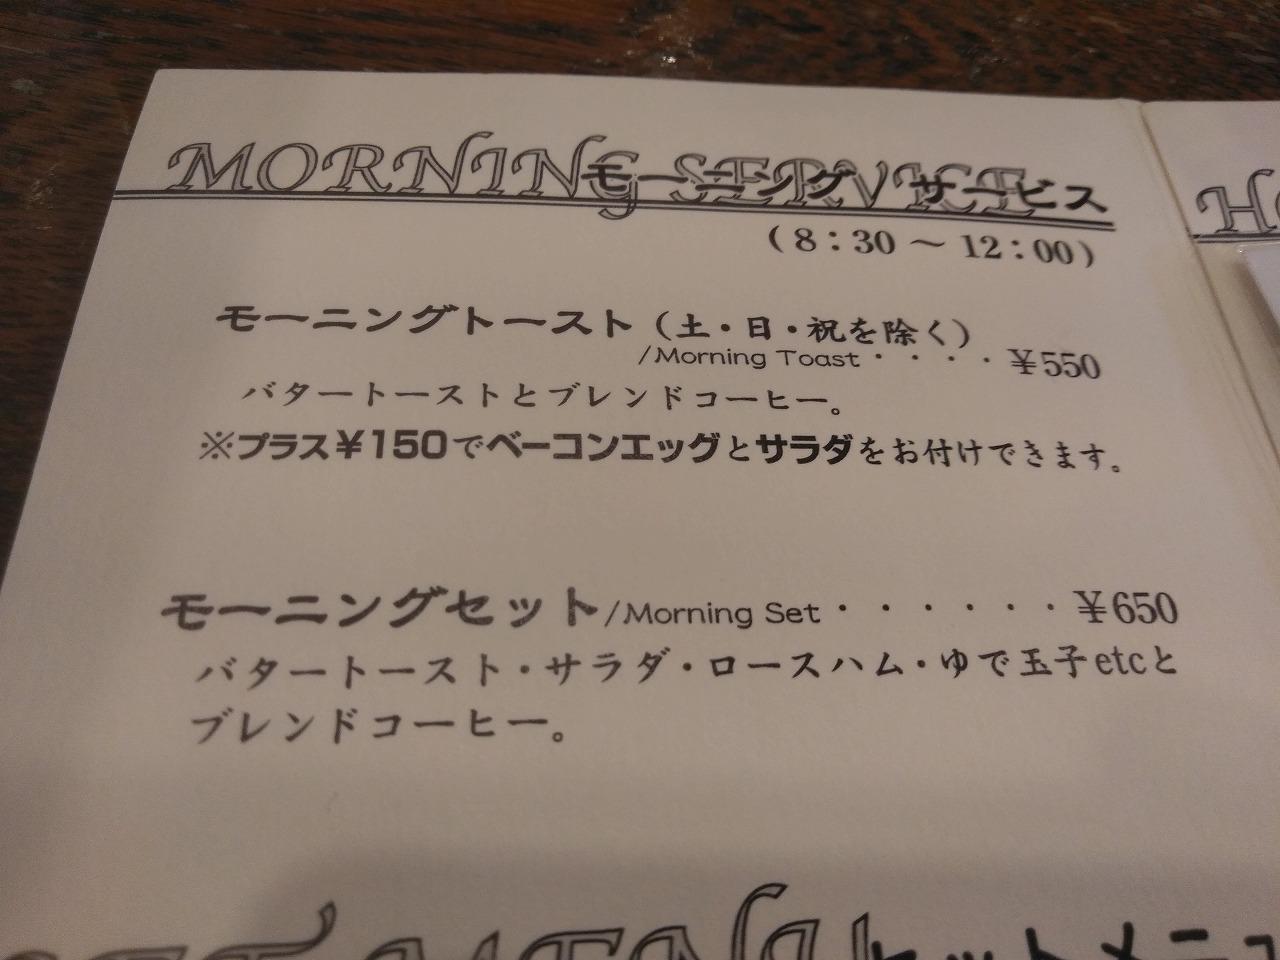 MORNING SERVICE モーニング サービス
(8:30～12:00)
モーニングトースト（土・日・祝を除く）
/Morning Toast・・・・¥550
バタートーストとブレンドコーヒー。
※プラス¥150でベーコンエッグとサラダをお付けできます。
モーニングセット/Morning Set・・・・・・・¥650
バタートースト・サラダ・ロースハム・ゆで玉子etcと
ブレンドコーヒー。